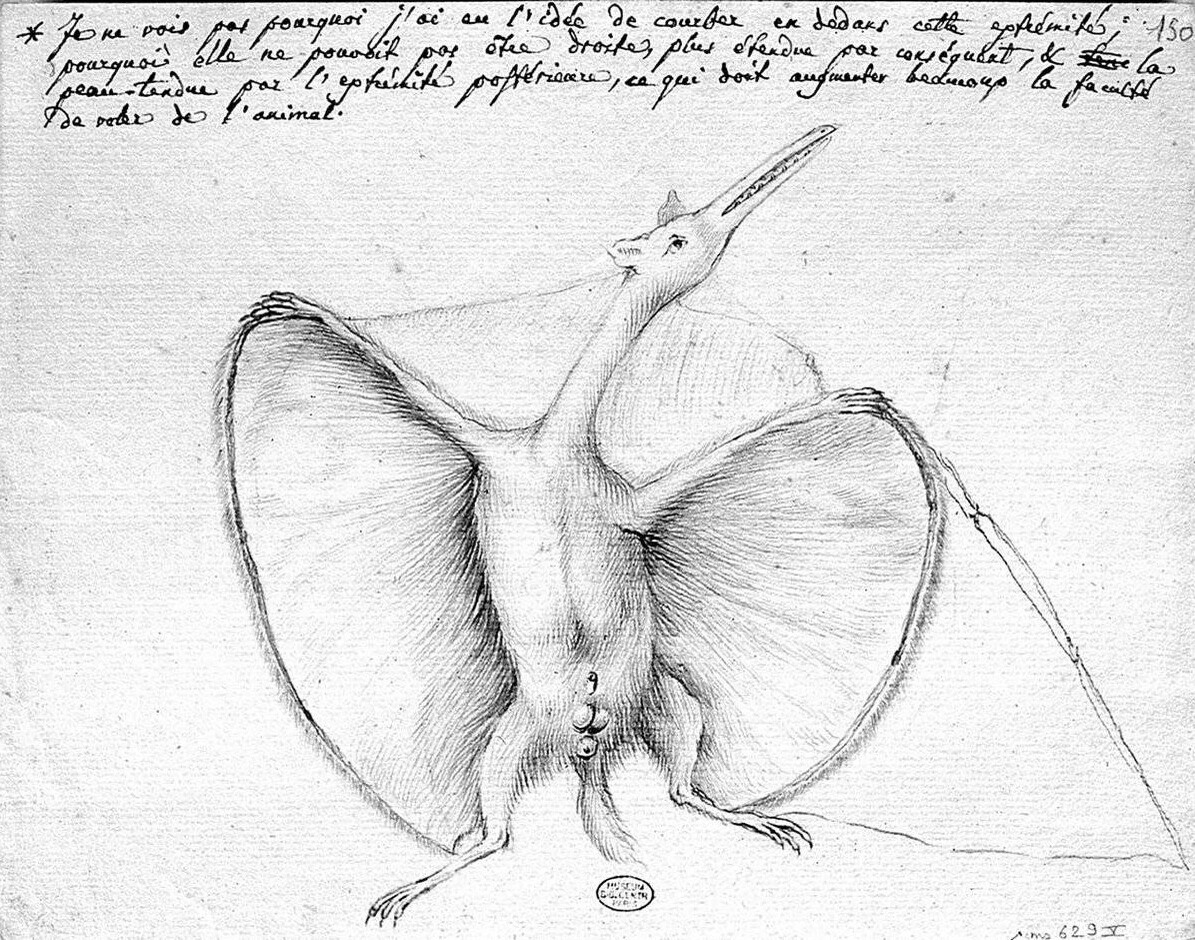 * Je ne vois pas pourquoi j'ai eu l'idée de courber en dedans cette extrémité;
150
pourquoi elle ne pouvoit pas être droite, plus étendue par conséquent, & la
peau-tendue par l'extrémité postérieure, ce qui doit augmenter beaucoup la faculté
de voler de l'animal.
MUSEUM
PARIS
ms 629 V